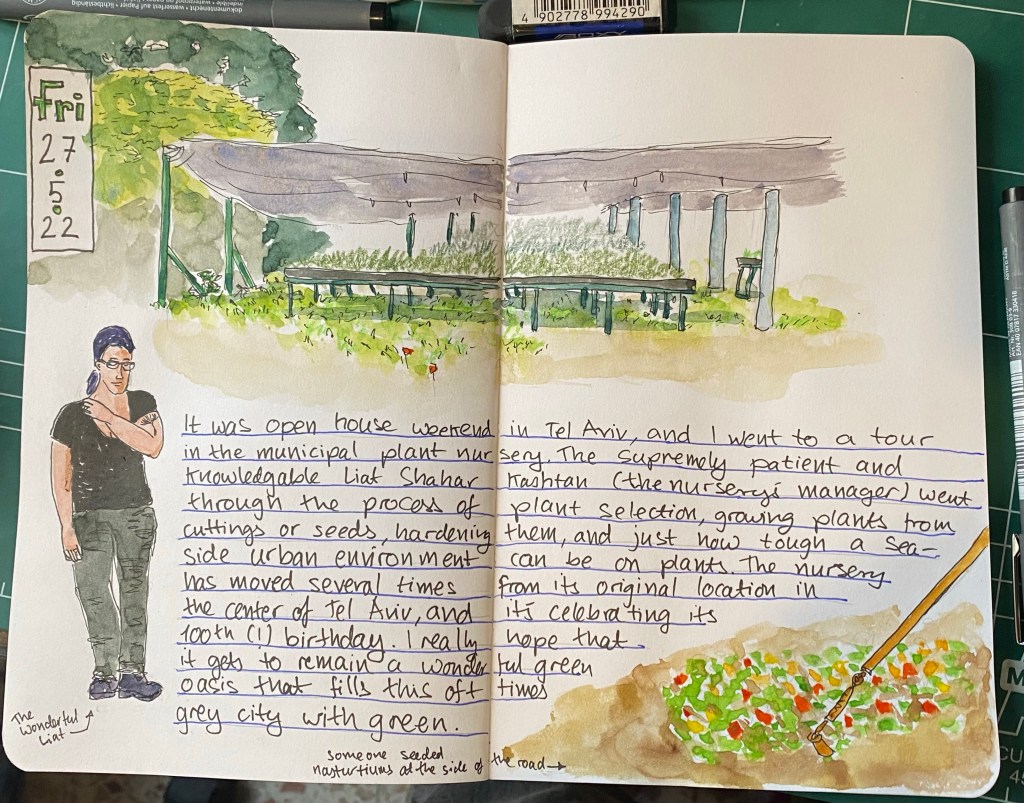 dokumentenecht • waterfest auf Papier • lichtbeständig
4 902778 994290
Fri
27
.
5
.
22
EAN 40 07817 330416
It was open house weekend in Tel Aviv, and I went to a tour
in the municipal plant nursery. The supremely patient and
knowledgable Liat Shahar Kashtan (the nursery's manager) went
through the process of plant selection, growing plants from
cuttings or seeds, hardening them, and just how tough a sea-
side urban environment can be on plants. The nursery
has moved several times from its original location in
the center of Tel Aviv, and it's celebrating its
100th (!) birthday. I really hope that
it gets to remain a wonderful green
oasis that fills this oft times
grey city with green.
The
wonderful
Liat
someone seeded
nasturtiums at the side of the road